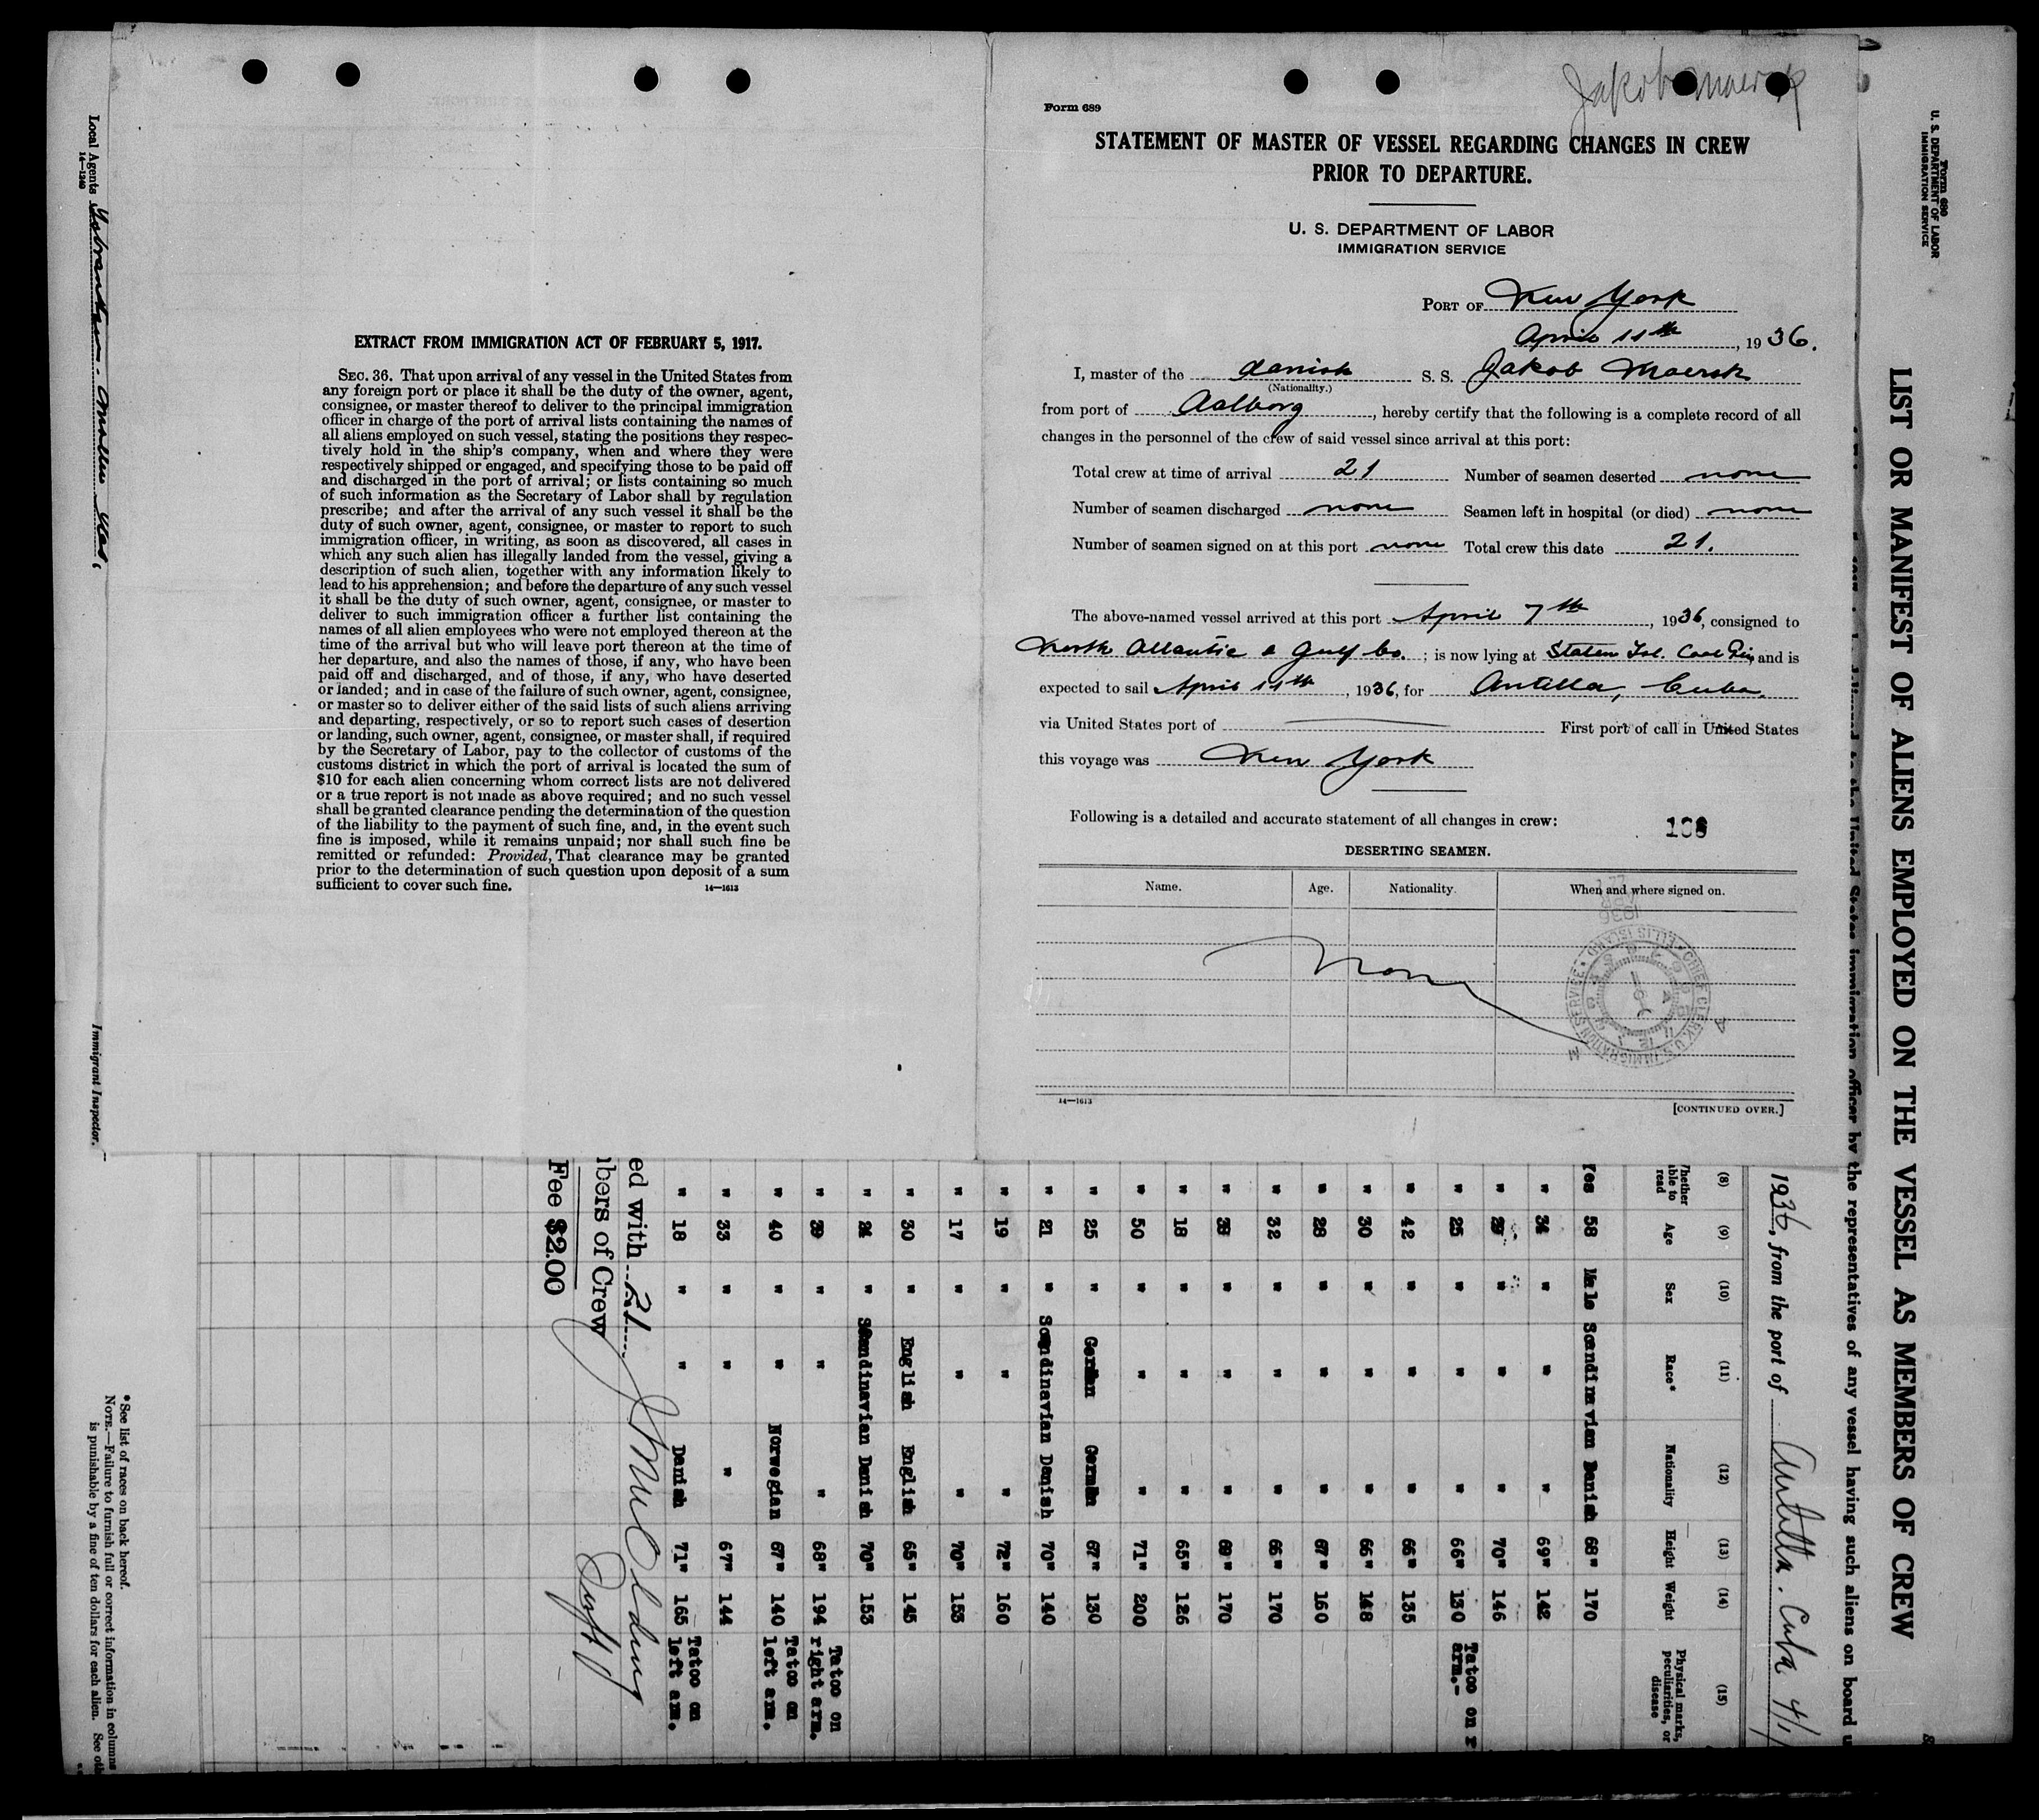 Jakob Maersk
Form 689
STATEMENT OF MASTER OF VESSEL REGARDING CHANGES IN CREW
PRIOR TO DEPARTURE.
U. S. DEPARTMENT OF LABOR
IMMIGRATION SERVICE
PORT OF New York
April 11th, 1936.
I, master of the danish S. S. Jakob Maersk
(Nationality.)
from port of Aalborg, hereby certify that the following is a complete record of all
changes in the personnel of the crew of said vessel since arrival at this port:
Total crew at time of arrival 21 Number of seamen deserted none
Number of seamen discharged none Seamen left in hospital (or died) none
Number of seamen signed on at this port none Total crew this date 21.
The above-named vessel arrived at this port April 7th, 1936, consigned to
North Atlantic & Gulf Co.; is now lying at Staten Isl. Coal Pier and is
expected to sail April 11th, 1936, for Antilla, Cuba.
via United States port of First port of call in United States
this voyage was New York
Following is a detailed and accurate statement of all changes in crew:
DESERTING SEAMEN.
Name. Age. Nationality. When and where signed on.
None
CHIEF CLERK U.S. IMMIGRATION SERVICE ELLIS ISLAND
14—1613
[CONTINUED OVER.]
EXTRACT FROM IMMIGRATION ACT OF FEBRUARY 5, 1917.
SEC. 36. That upon arrival of any vessel in the United States from
any foreign port or place it shall be the duty of the owner, agent,
consignee, or master thereof to deliver to the principal immigration
officer in charge of the port of arrival lists containing the names of
all aliens employed on such vessel, stating the positions they respec-
tively hold in the ship's company, when and where they were
respectively shipped or engaged, and specifying those to be paid off
and discharged in the port of arrival; or lists containing so much
of such information as the Secretary of Labor shall by regulation
prescribe; and after the arrival of any such vessel it shall be the
duty of such owner, agent, consignee, or master to report to such
immigration officer, in writing, as soon as discovered, all cases in
which any such alien has illegally landed from the vessel, giving a
description of such alien, together with any information likely to
lead to his apprehension; and before the departure of any such vessel
it shall be the duty of such owner, agent, consignee, or master to
deliver to such immigration officer a further list containing the
names of all alien employees who were not employed thereon at the
time of the arrival but who will leave port thereon at the time of
her departure, and also the names of those, if any, who have been
paid off and discharged, and of those, if any, who have deserted
or landed; and in case of the failure of such owner, agent, consignee,
or master so to deliver either of the said lists of such aliens arriving
and departing, respectively, or so to report such cases of desertion
or landing, such owner, agent, consignee, or master shall, if required
by the Secretary of Labor, pay to the collector of customs of the
customs district in which the port of arrival is located the sum of
$10 for each alien concerning whom correct lists are not delivered
or a true report is not made as above required; and no such vessel
shall be granted clearance pending the determination of the question
of the liability to the payment of such fine, and, in the event such
fine is imposed, while it remains unpaid; nor shall such fine be
remitted or refunded: Provided, That clearance may be granted
prior to the determination of such question upon deposit of a sum
sufficient to cover such fine.
14—1613
Form 689
U. S. DEPARTMENT OF LABOR
IMMIGRATION SERVICE
LIST OR MANIFEST OF ALIENS EMPLOYED ON THE VESSEL AS MEMBERS OF CREW
the United States immigration officer by the representatives of any vessel having such aliens on board
1936, from the port of Antilla. Cuba 4/1
(8) (9) (10) (11) (12) (13) (14) (15)
Whether able to read Age Sex Race* Nationality Height Weight Physical marks, peculiarities, or disease
Yes 58 Male Scandinavian Danish 68" 170
" 34 " " " 69" 142
" " " " 70" 146
" 25 " " " 66" 130 Tatoo on r arm.-
" 42 " " " 66" 135
" 30 " " " 66" 148
" 28 " " " 67" 160
" 32 " " " 66" 170
" " " " 69" 170
" 18 " " " 65" 126
" 50 " " " 71" 200
" 25 " German German 67" 130
" 21 " Scandinavian Danish 70" 140
" 19 " " " 72" 160
" 17 " " " 70" 153
" 30 " English English 65" 145
" " Scandinavian Danish 70" 153
" 39 " " " 68" 194 Tatoo on right arm.
" 40 " " Norwegian 67" 140 Tatoo on left arm.
" 33 " " " 67" 144
" 18 " " Danish 71" 165 Tatoo on left arm.
ed with 21
bers of Crew
Fee $2.00
*See list of races on back hereof.
NOTE.—Failure to furnish full or correct information in columns
is punishable by a fine of ten dollars for each alien. See
Local Agents
14—1240
Immigrant Inspector.